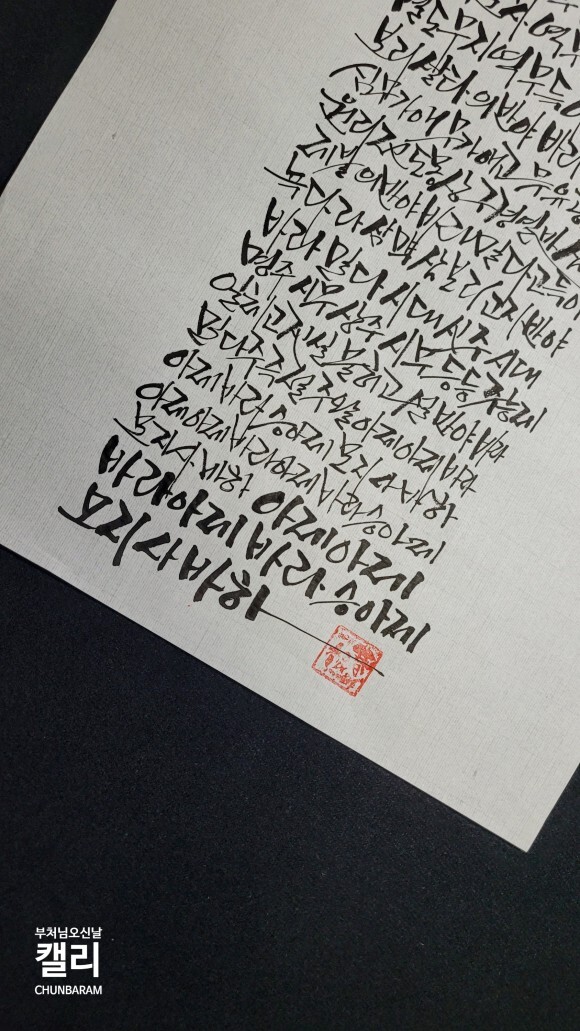 무지역무득
보리살타 의반야바라
심무가애 무가애고 무유공
원리전도몽상 구경열반 삼
제불 의반야바라밀다고 득아
녹다라삼먁삼보리 고지반야
바라밀다 시대신주 시대
명주 시무상주 시무등등주 능제
일체고 진실불허 고설반야바라
밀다주 즉설주왈 아제아제 바라
아제 바라승아제 모지사바하
아제아제 바라아제 바라승아제
모지사바하
아제아제
바라아제 바라승아제
모지사바하
부처님오신날
캘리
CHUNBARAM